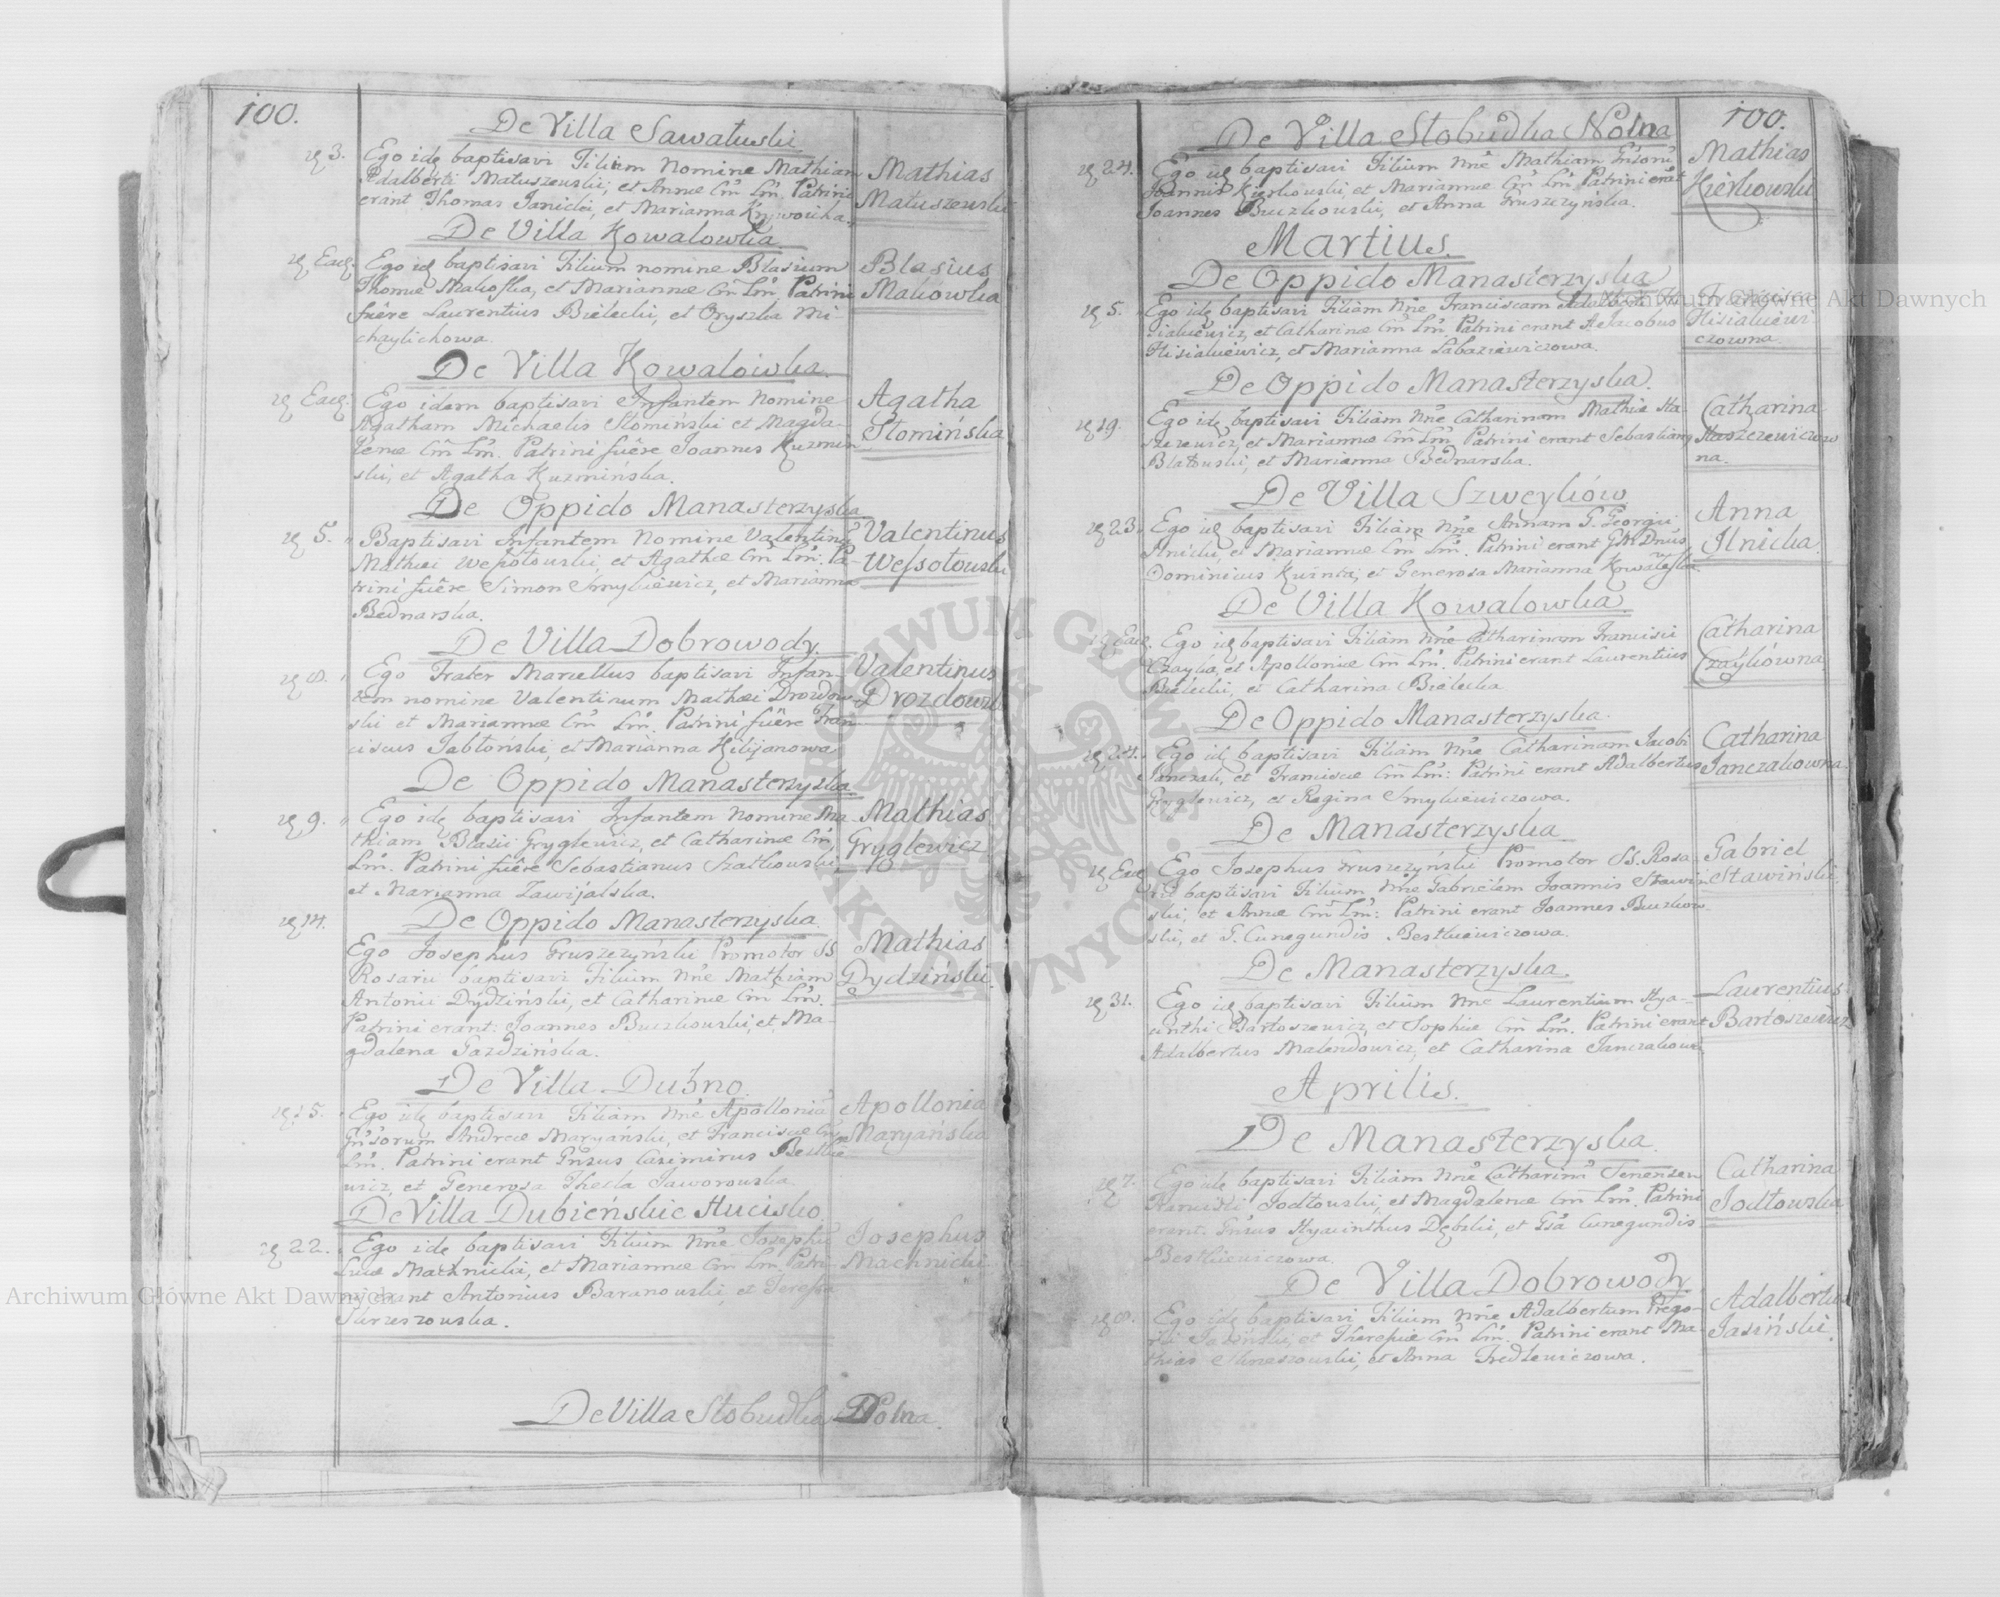 100.
De Villa Sawaluski
3. Ego idę baptisavi Filium Nomine Mathiam
Adalberti Matuszewski, et Annæ Cm̃ Lm̃. Patrini
erant Thomas Janicki, et Marianna
Mathias
Matuszewski
De Villa Kowalowka.
Eaę. Ego idę baptisavi Filium nomine Blasium
Thomæ Makoska, et Mariannæ Cm̃ Lm̃. Patrini
fuêre Laurentius Bielecki, et Oryszka Mi-
chaylichowa.
Blasius
Makowka
De Villa Kowalowka.
Eaę. Ego idem baptisavi Infantem Nomine
Agatham Michaelis Słomiński et Magda-
lenæ Cm̃ Lm̃. Patrini fuêre Joannes Kuzmin
ski, et Agatha Kuzmińska.
Agatha
Słomińska
De Oppido Manasterzyska
5. Baptisavi Infantem Nomine Valentinũ
Mathei Wessołowski, et Agathæ Cm̃ Lm̃. Pa-
trini fuêre Simon Smykiewicz, et Marianna
Bednarska.
Valentinus
Wessołowski
De Villa Dobrowody.
8. Ego Frater Marcellus baptisavi Infan-
tem nomine Valentinum Mathei Drozdow
ski et Mariannæ Cm̃ Lm̃. Patrini fuêre Fran
ciscus Jabłoński, et Marianna Kilijanowa
Valentinus
Drozdowski
De Oppido Manasterzyska.
9. Ego idę baptisavi Infantem Nomine Ma-
thiam Blasii Gryglewicz, et Catharinæ Cm̃
Lm̃. Patrini fuêre Sebastianus Szatkowski
et Marianna Zawijalska.
Mathias
Gryglewicz
De Oppido Manasterzyska.
14. Ego Josephus Gruszczyński Promotor SS
Rosarii baptisavi Filium Nñe Mathiam
Antonii Dydziński, et Catharinæ Cm̃ Lm̃.
Patrini erant: Joannes Buczkowski, et Ma-
gdalena Gazdzińska.
Mathias
Dydziński.
De Villa Dubno.
15. Ego idę baptisavi Filiam Nñe Apolloniã
Gñsorum Andreæ Maryański, et Franciscæ Cm̃
Lm̃. Patrini erant Gñsus Casimirus Bestkie
wicz, et Generosa Thecla Jaworowska.
Apollonia
Maryańska
De Villa Dubieńskie Hucisko
22. Ego idę baptisavi Filium Nñe Josephũ
Lucæ Machnicki, et Mariannæ Cm̃ Lm̃. Patri-
ni erant Antonius Baranowski, et Teressa
Skrzeszowska.
Josephus
Machnicki
De Villa Stobudka Dolna.
100.
De Villa Stobudka Dolna
24. Ego idę baptisavi Filium Nñe Mathiam Gñsorũ
Joannis Kierkowski, et Mariannæ Cm̃ Lm̃. Patrini erãt
Joannes Buczkowski, et Anna Gruszczyńska.
Mathias
Kierkowski
Martius.
De Oppido Manasterzyska
5. Ego idę baptisavi Filiam Nñe Franciscam
sialuewicz, et Catharinæ Cm̃ Lm̃. Patrini erant Jacobus
Hisialuewicz, et Marianna Labaziewiczowa.
Francisca
Hisialuewi
czowna.
De Oppido Manasterzyska.
19. Ego idę baptisavi Filiam Nñe Catharinam Mathiæ Sta-
szczewicz, et Mariannæ Cm̃ Lm̃. Patrini erant Sebastianus
Błatowski, et Marianna Bednarska.
Catharina
Staszczewiczow
na.
De Villa Szweyków
23. Ego idę baptisavi Filiam Nñe Annam G. Georgii
Ilnicki, et Mariannæ Cm̃ Lm̃. Patrini erant Dñus
Dominicus Kwinta, et Generosa Marianna Kowalewska
Anna
Ilnicka.
De Villa Kowalowka.
Eaę. Ego idę baptisavi Filiam Nñe Catharinam Francisci
Czayka, et Apolloniæ Cm̃ Lm̃. Patrini erant Laurentius
Bielecki, et Catharina Bielecka
Catharina
Czaykówna
De Oppido Manasterzyska.
24. Ego idę baptisavi Filiam Nñe Catharinam Jacobi
Janczak, et Franciscæ Cm̃ Lm̃: Patrini erant Adalbertus
Gryglewicz, et Regina Smykiewiczowa.
Catharina
Janczakowna.
De Manasterzyska
Eaę. Ego Josephus Gruszczyński Promotor SS. Rosa-
rii baptisavi Filium Nñe Gabrielem Joannis Stawiń
ski, et Annæ Cm̃ Lm̃: Patrini erant Joannes Buczkow
ski, et G. Cunegundis Bestkiewiczowa.
Gabriel
Stawiński.
De Manasterzyska.
31. Ego idę baptisavi Filium Nñe Laurentium Hya-
cinthi Bartoszewicz, et Sophiæ Cm̃ Lm̃. Patrini erant
Adalbertus Malendowicz, et Catharina Janczakowa
Laurentius
Bartoszewicz
Aprilis.
De Manasterzyska.
7. Ego idę baptisavi Filiam Nñe Catharinã
Jodłowski, et Magdalenæ Cm̃ Lm̃. Patrini
erant: Gñsus Hyacinthus Dębski, et Gsa Cunegundis
Bestkiewiczowa.
Catharina
Jodłowska
De Villa Dobrowody.
8. Ego idę baptisavi Filium Nñe Adalbertum Grego-
rii Jasiński, et Theressæ Cm̃ Lm̃. Patrini erant Ma-
thias Skrzeszowski, et Anna Fredlewiczowa.
Adalbertus
Jasiński.
Archiwum Główne Akt Dawnych
Archiwum Główne Akt Dawnych
ARCHIWUM GŁÓWNE AKT DAWNYCH